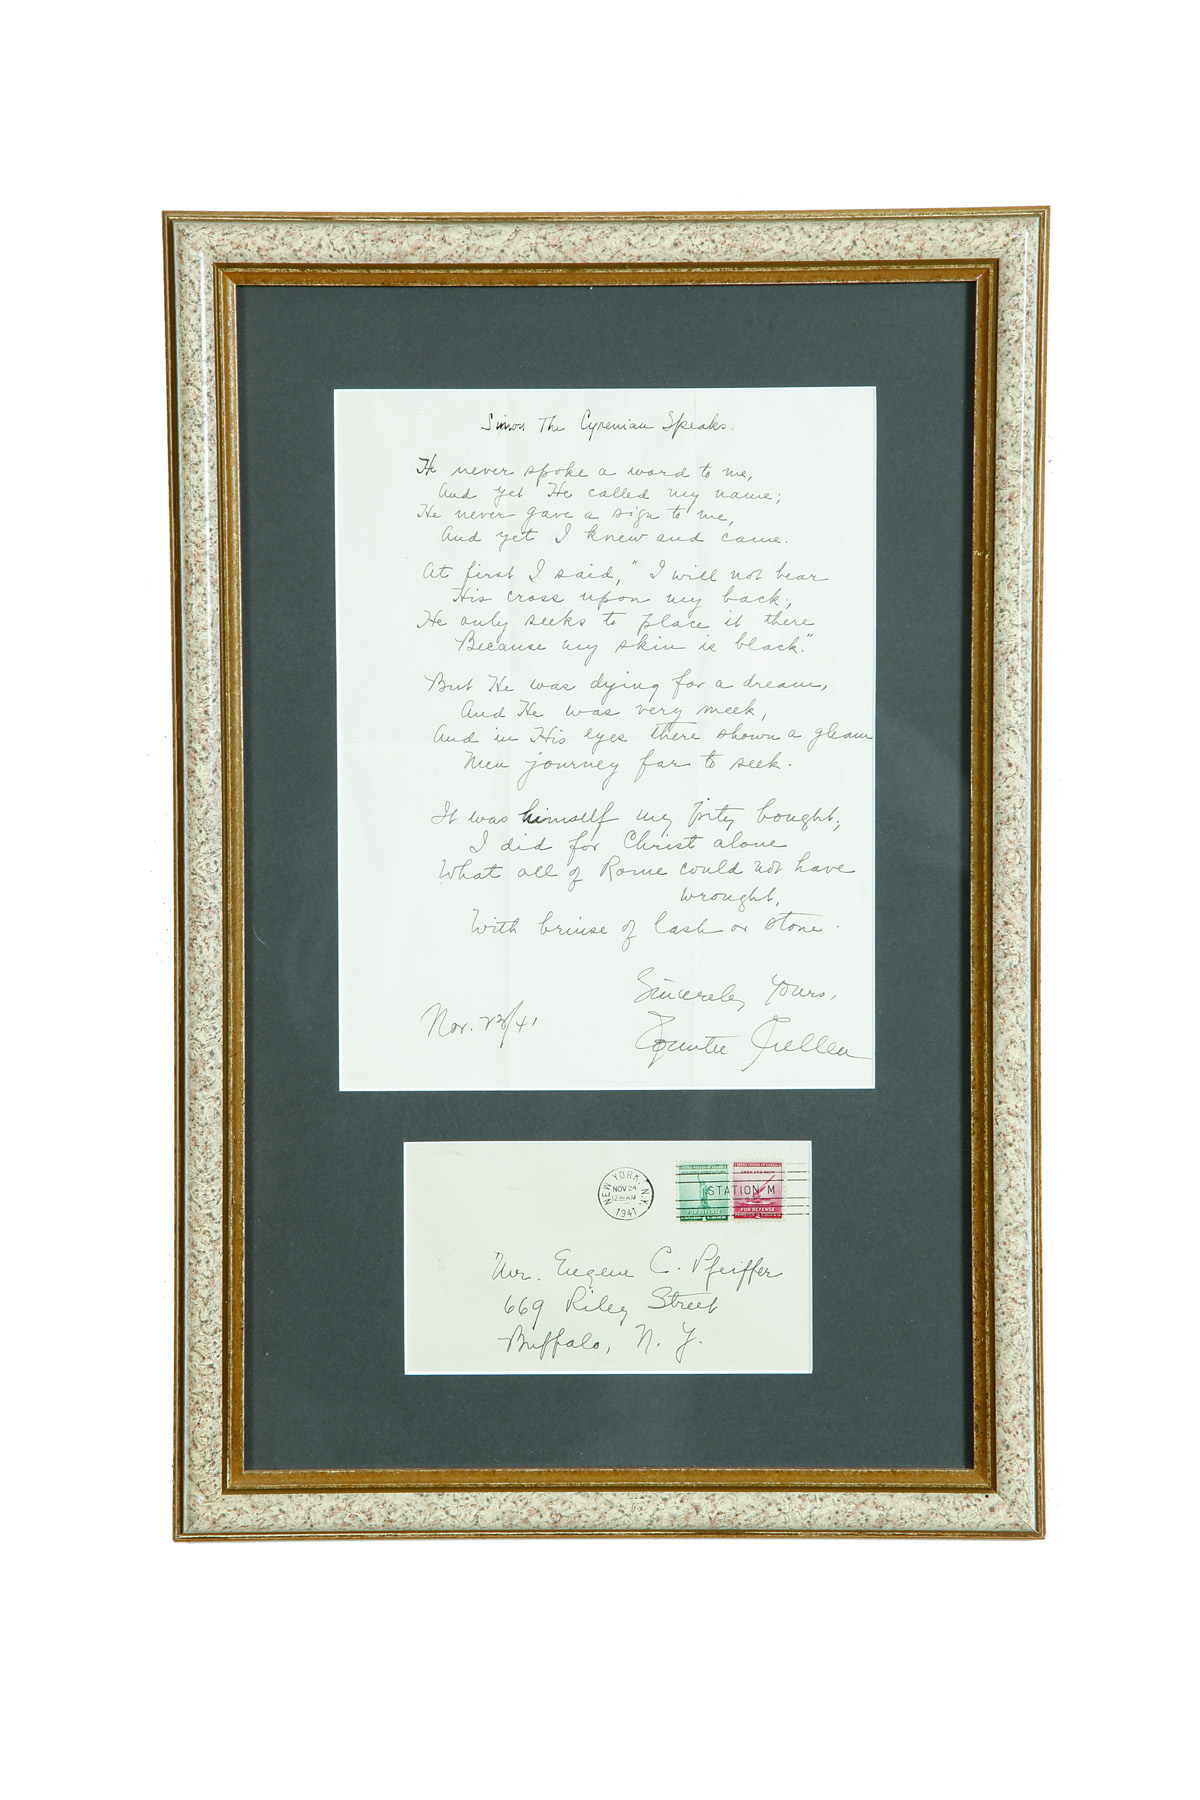 Simon The Cyrenian Speaks.
He never spoke a word to me,
And yet He called my name;
He never gave a sign to me,
And yet I knew and came.
At first I said, "I will not bear
His cross upon my back;
He only seeks to place it there
Because my skin is black."
But He was dying for a dream,
And He was very meek,
And in His eyes there shown a gleam
Men journey far to seek.
It was himself my pity bought;
I did for Christ alone
What all of Rome could not have
wrought,
With bruise of lash or stone.
Sincerely Yours,
Nov. 23/41
Countee Cullen
NEW YORK, N.Y.
NOV 24
1941
STATION M
FOR DEFENSE
FOR DEFENSE
Mr. Eugene C. Pfeiffer
669 Riley Street
Buffalo, N. Y.